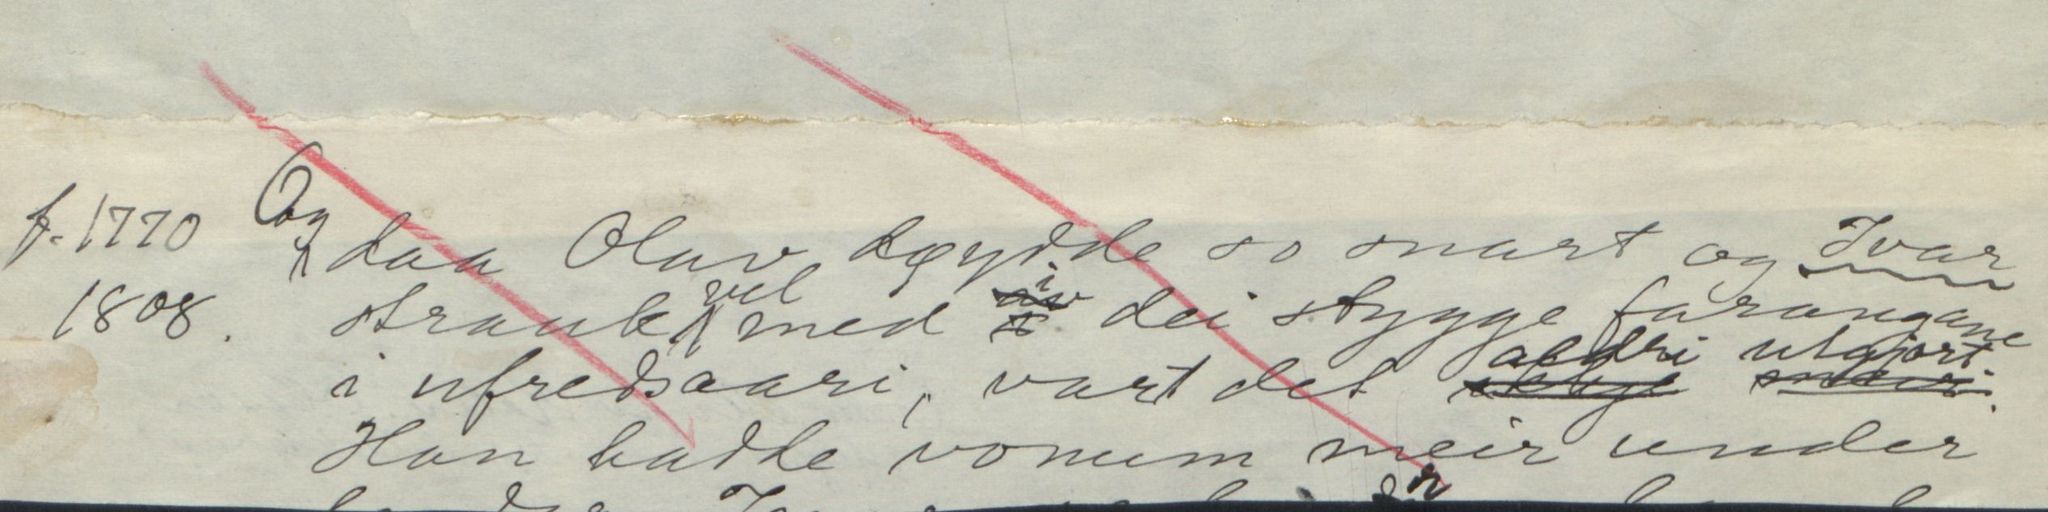 f. 1770 Og daa Olav døydde so snart og Ivar
1808. strauk vel med i dei stygge farangane
i ufredsaari, vart det aldri utgjort.
Han hadde vonum meir under